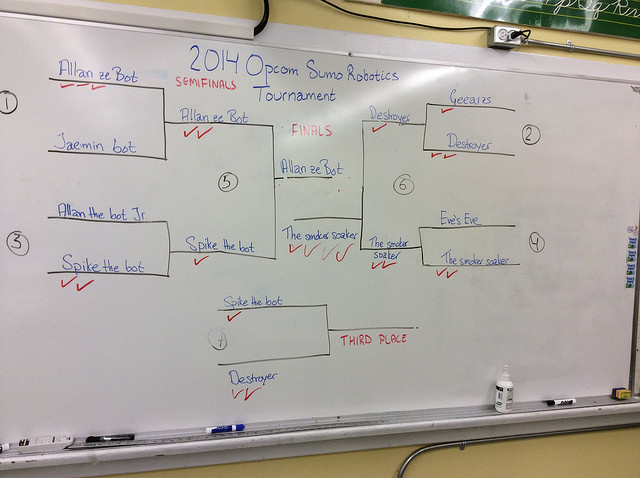 2014 Opcom Sumo Robotics
Tournament
SEMIFINALS
FINALS
1
Allan ze Bot
Jaemin bot
Allan ze Bot
3
Allan the bot Jr.
Spike the bot
Spike the bot
5
Allan ze Bot
The smoker soaker
Destroyer
Geearzs
Destroyer
2
6
The smoker
soaker
Eve's Eve
The smoker soaker
4
7
Spike the bot
Destroyer
THIRD PLACE